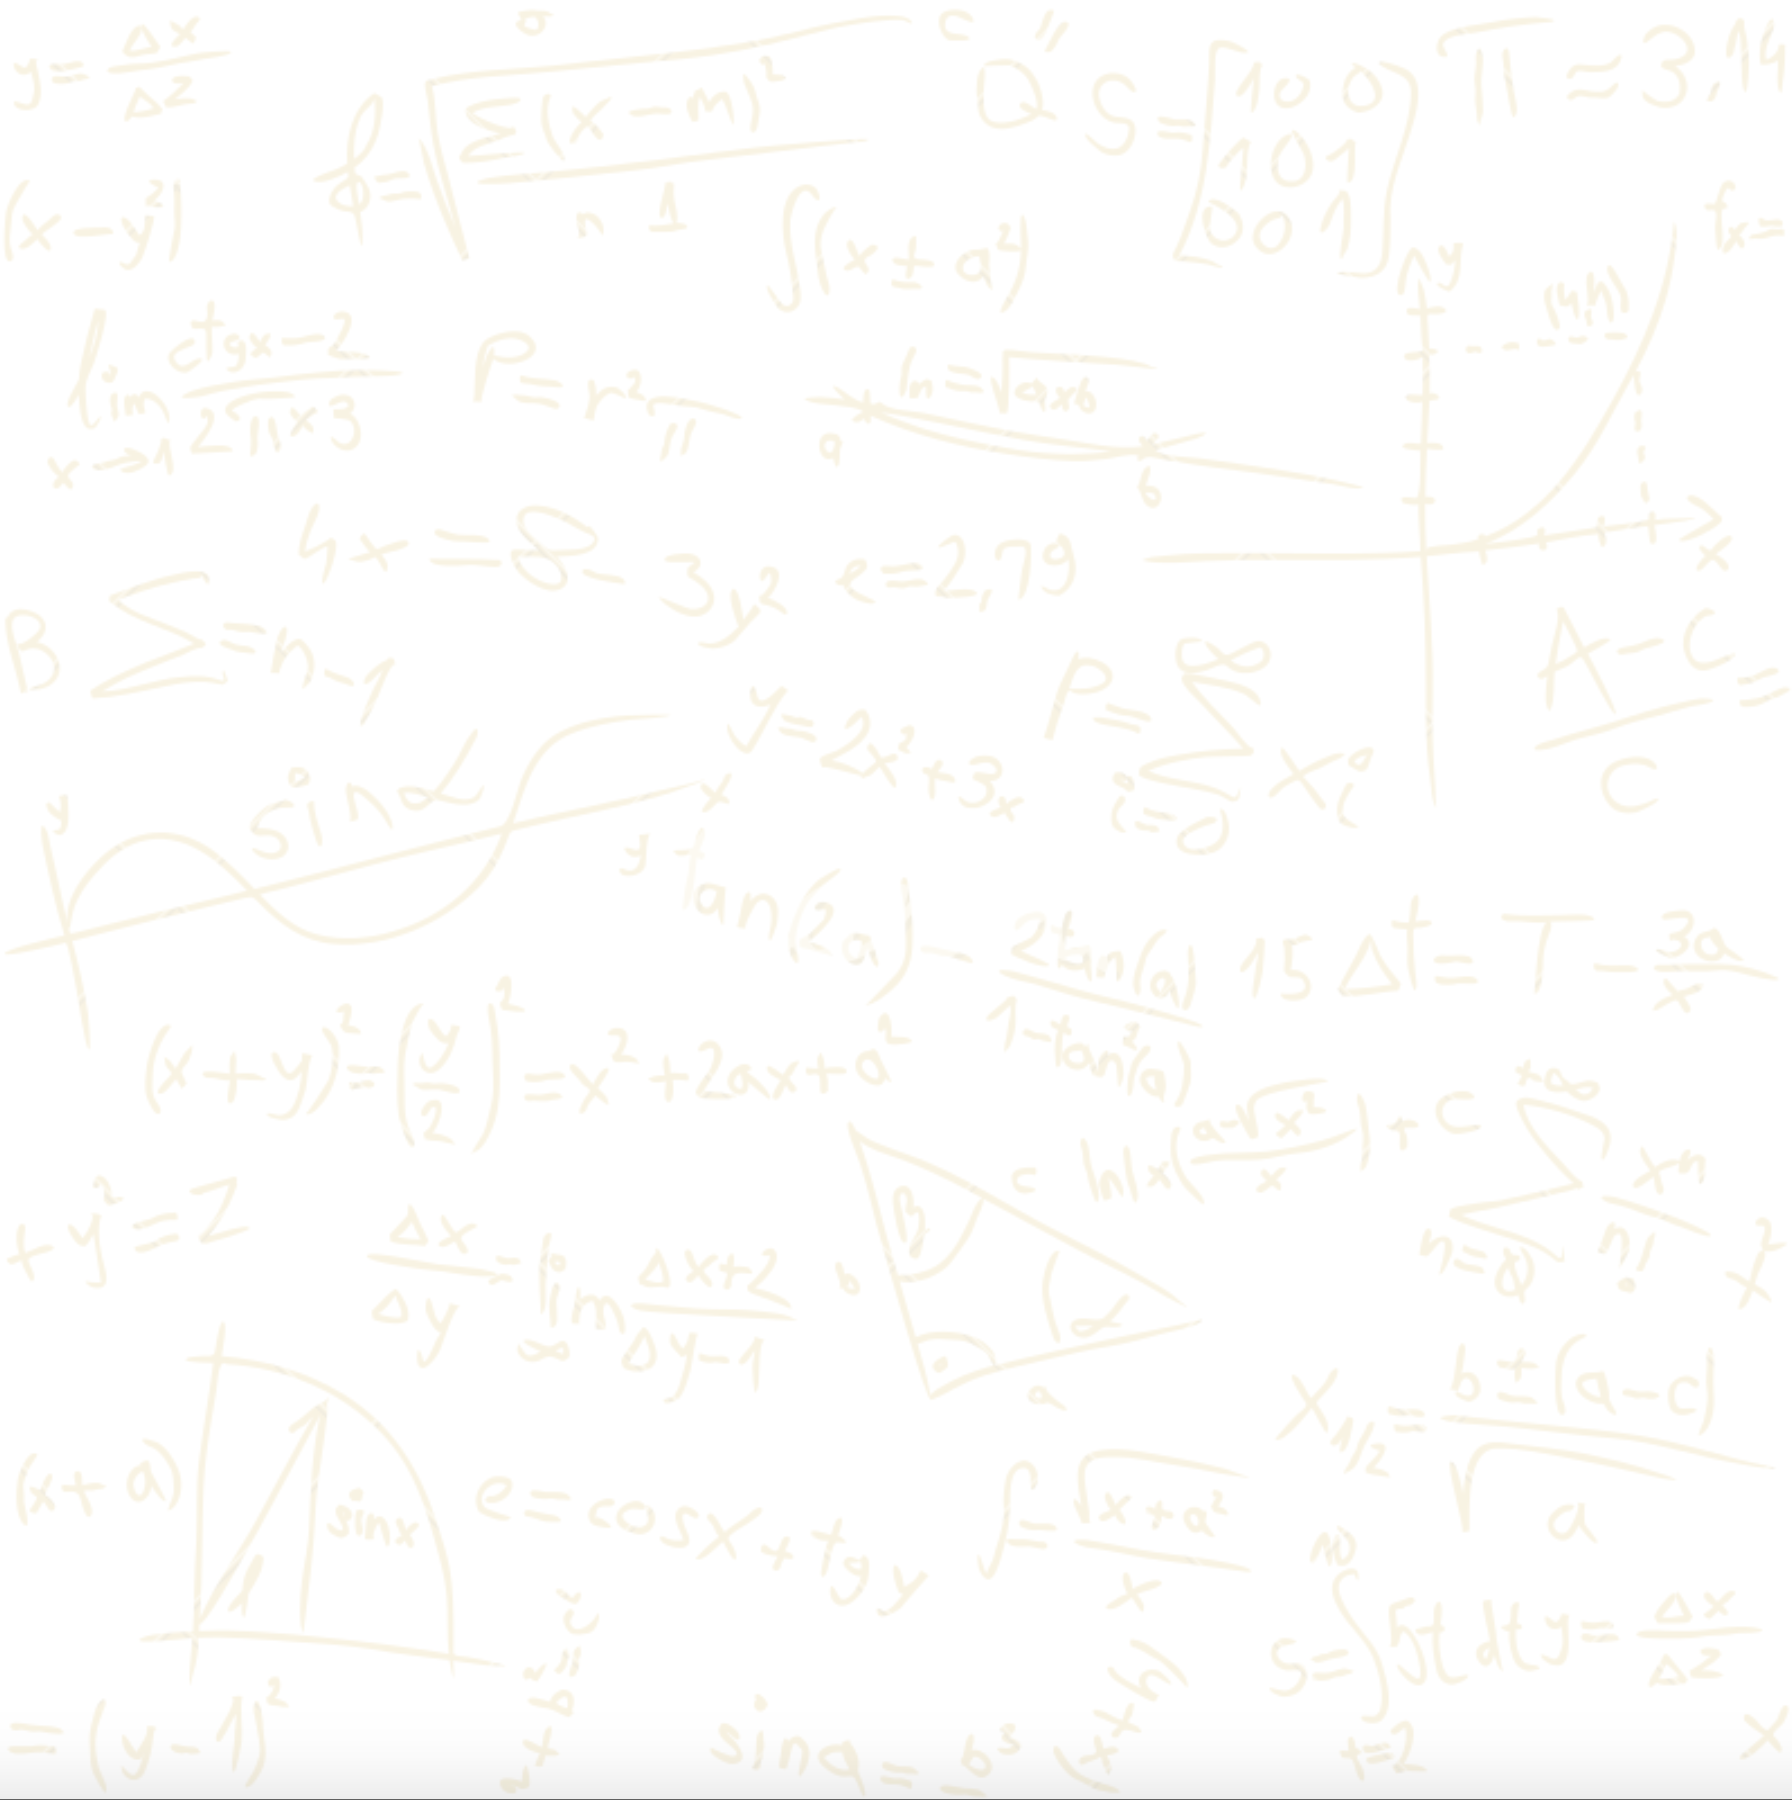 y = Δx/Δz
δ = √(Σ(x − m)²/n 1)
Q"
S = [1 0 0
1 0 1
0 0 1]
π ≈ 3,14
(x − y²)
∫(x ± a²)
fx =
lim x→1 ctgx − 2 / 2π × 3
P = r²π
ln = √axb
a
b
y
(4,h)
x
4x = 8 − 3y²
e = 2,79
B Σ = n − 1
y = 2x² + 3x
P = Σ xi
∞
i=0
A − C / C =
y
sin α
x
y
tan(2a) − 2tan(a) / 1 − tan²(a)
15 Δt = T − 3a/x
(x + y)² = (y/2)² = x² + 2ax + a²
ln|x(a−√x²/x) + c
+∞
Σ xⁿ/n!
n=0
+ y² = Z
Δx/Δy = lim ∞ Δx+2 / Δy−1
β
c
b
α
a
x²
X1/2 = b ± (a − c) / √a
(x + a)
sinx
1
e = cosx + tgy
∫ = √x + a² / x
S = ∫ 5t dt y = Δx/Δz
t=2
= (y − 1)²
sina = b³
(x + h)
x